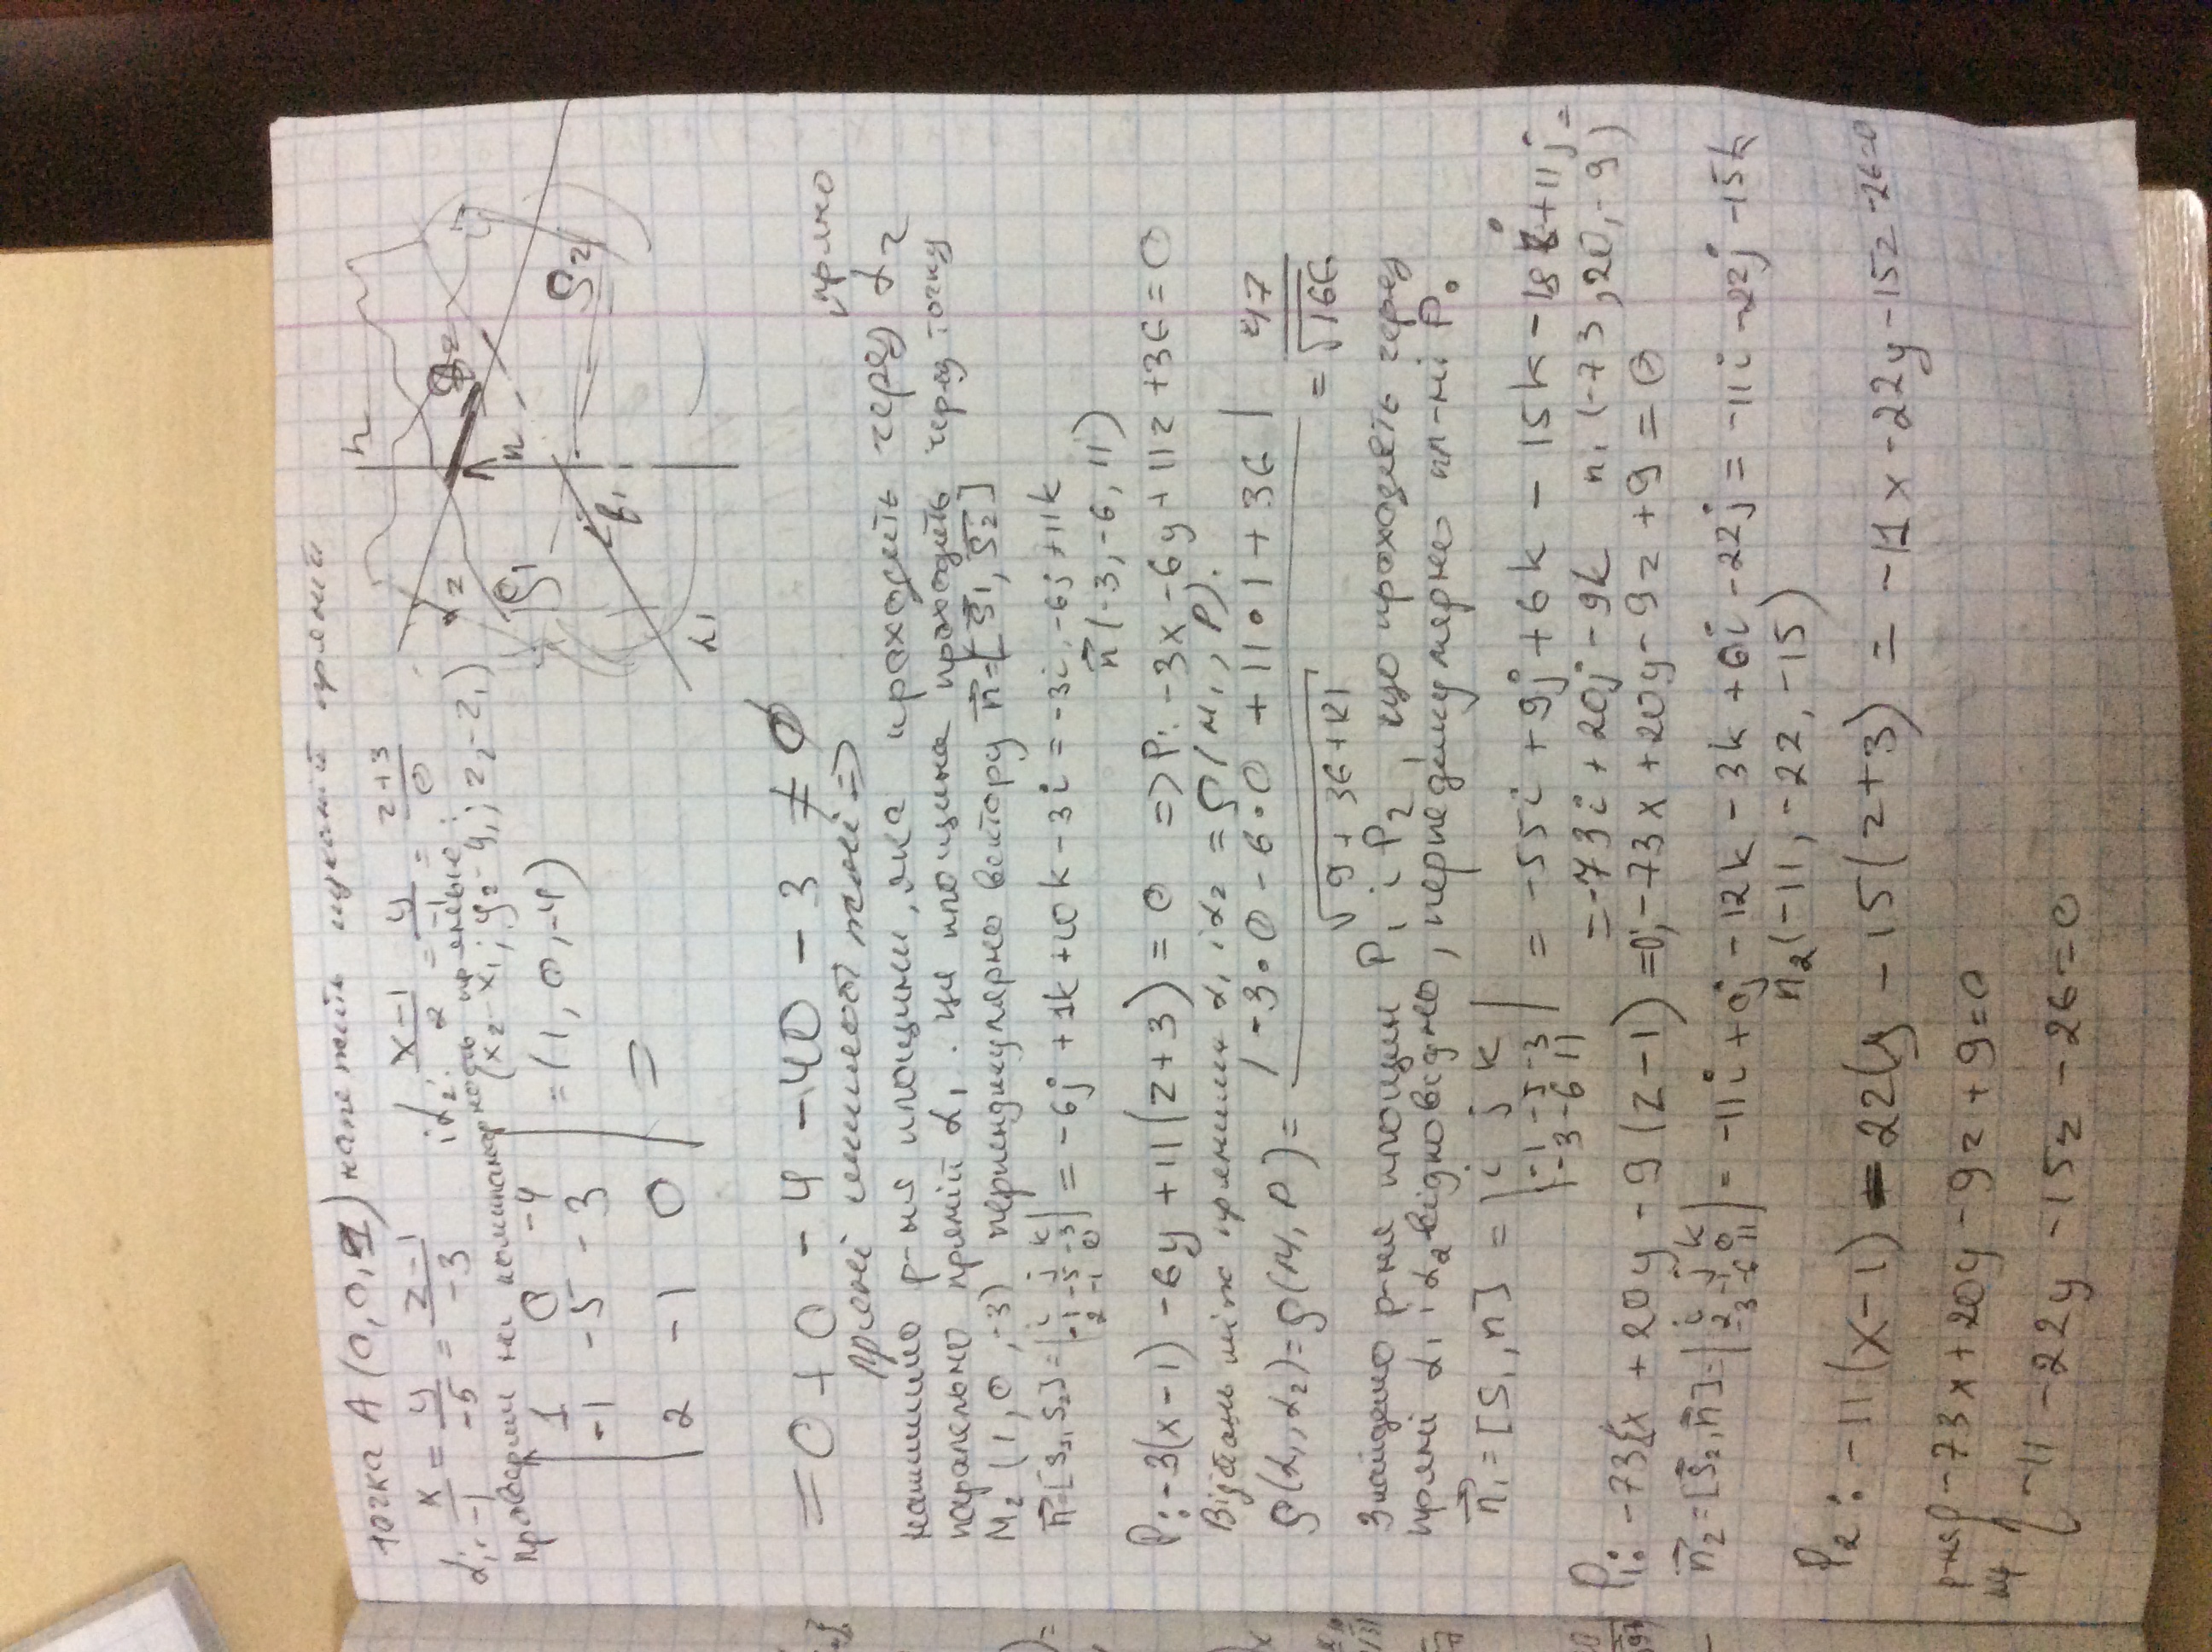 точка A (0, 0, 1) належить шуканій прямій
α₁: x/-1 = y/-5 = z-1/-3 i α₂: x-1/2 = y/-1 = z+3/0
проверим на компланарность прямые:
(x₂-x₁; y₂-y₁; z₂-z₁)
| 1 0 -4 |
| -1 -5 -3 | = (1, 0, -4)
| 2 -1 0 | =
n
α₂
S₁
n
S₂
α₁
= 0 + 0 - 4 - 40 - 3 ≠ 0
прямі мимобіжні =>
пряму
напишимо р-ня площини, яка проходить через α₂
паралельно прямій α₁. Ця площина проходить через точку
M₂ (1, 0, -3) перпендикулярно вектору n = [S₁, S₂]
n = [S₁, S₂] = | i j k | -1 -5 -3 | 2 -1 0 | = -6j + 1k + 10k - 3i = -3i - 6j + 11k
n (-3, -6, 11)
P: -3(x-1) - 6y + 11(z+3) = 0 => P: -3x - 6y + 11z + 36 = 0
Відстань між прямими α₁ i α₂ = ρ(M₁, P).
ρ(α₁, α₂) = ρ(M, P) = |-3·0 - 6·0 + 11·1 + 36| / √9+36+121 = 47/√166
Знайдемо р-ня площин P₁ i P₂, що проходять через
прямі α₁ i α₂ відповідно, перпедикулярно пл-ні P.
n₁ = [S₁, n] = | i j k | -1 -5 -3 | -3 -6 11 | = -55i + 9j + 6k - 15k - 18i + 11j =
= -73i + 20j - 9k n₁ (-73, 20, -9)
P₁: -73x + 20y - 9(z-1) = 0; -73x + 20y - 9z + 9 = 0
n₂ = [S₂, n] = | i j k | 2 -1 0 | -3 -6 11 | = -11i + 0j - 12k - 3k + 0i - 22j = -11i - 22j - 15k
n₂ (-11, -22, -15)
P₂: -11(x-1) - 22y - 15(z+3) = -11x - 22y - 15z - 26=0
р-ня { -73x + 20y - 9z + 9 = 0
-11 - 22y - 15z - 26 = 0